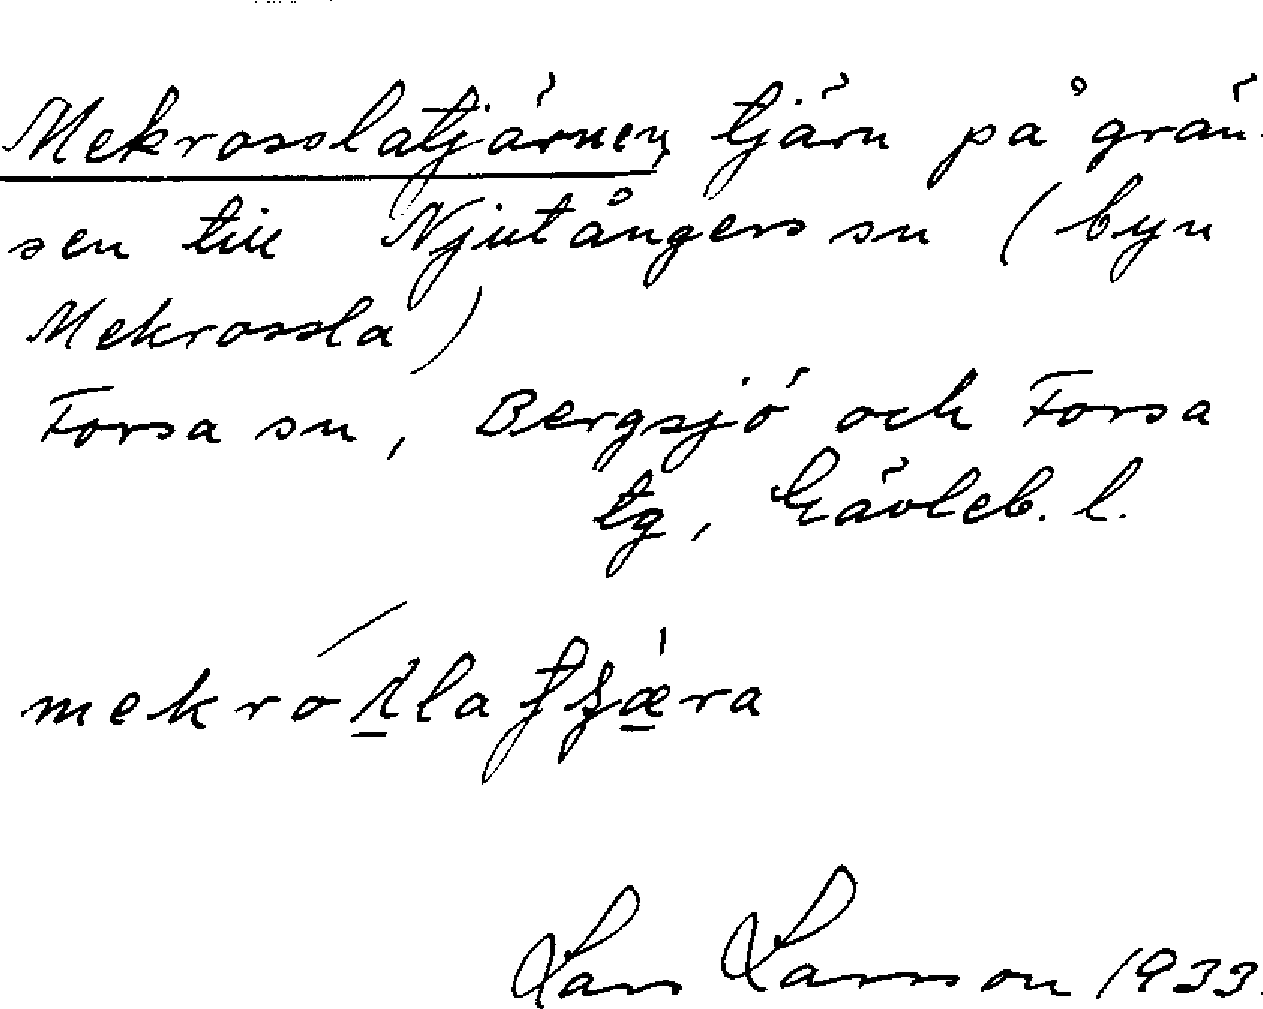 Mekrosslatjärnen, tjärn på grän-
sen till Njutångers sn (byn
Mekrossla)
Forsa sn, Bergsjö och Forsa
tg, Gävleb. l.
Lars Larsson 1933.